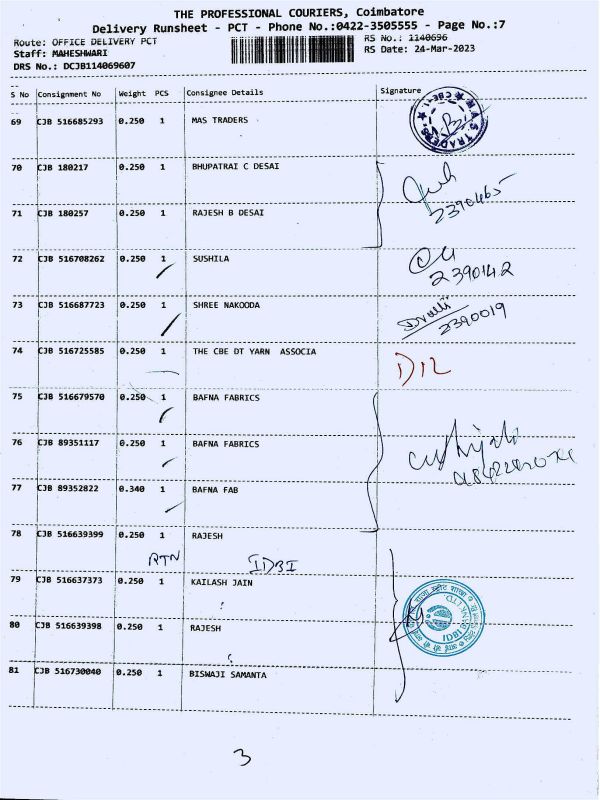 THE PROFESSIONAL COURIERS, Coimbatore
Delivery Runsheet - PCT - Phone No.:0422-3505555 - Page No.:7
Route: OFFICE DELIVERY PCT RS No.: 1140696
Staff: MAHESHWARI RS Date: 24-Mar-2023
DRS No.: DCJB114069607
S No Consignment No Weight PCS Consignee Details Signature
69 CJB 516685293 0.250 1 MAS TRADERS
70 CJB 180217 0.250 1 BHUPATRAI C DESAI
71 CJB 180257 0.250 1 RAJESH B DESAI 2390465
72 CJB 516708262 0.250 1 SUSHILA
2390142
73 CJB 516687723 0.250 1 SHREE NAKOODA
2390019
74 CJB 516725585 0.250 1 THE CBE DT YARN ASSOCIA
75 CJB 516679570 0.250 1 BAFNA FABRICS
76 CJB 89351117 0.250 1 BAFNA FABRICS
77 CJB 89352822 0.340 1 BAFNA FAB
78 CJB 516639399 0.250 1 RAJESH
RTN IDBI
79 CJB 516637373 0.250 1 KAILASH JAIN
80 CJB 516639398 0.250 1 RAJESH
IDBI BANK LTD.
81 CJB 516730040 0.250 1 BISWAJI SAMANTA
3